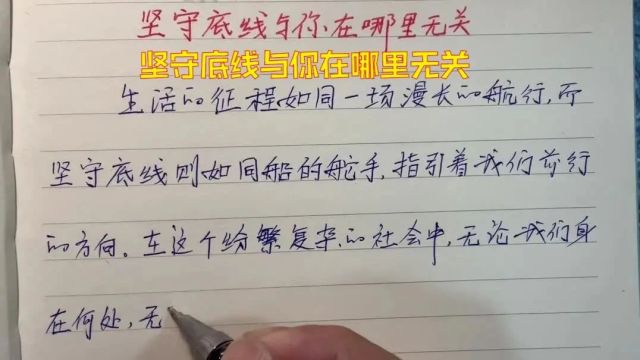 坚守底线与你在哪里无关
坚守底线与你在哪里无关
生活的征程如同一场漫长的航行,而
坚守底线则如同船的舵手,指引着我们前行
的方向。在这个纷繁复杂的社会中,无论我们身
在何处,无